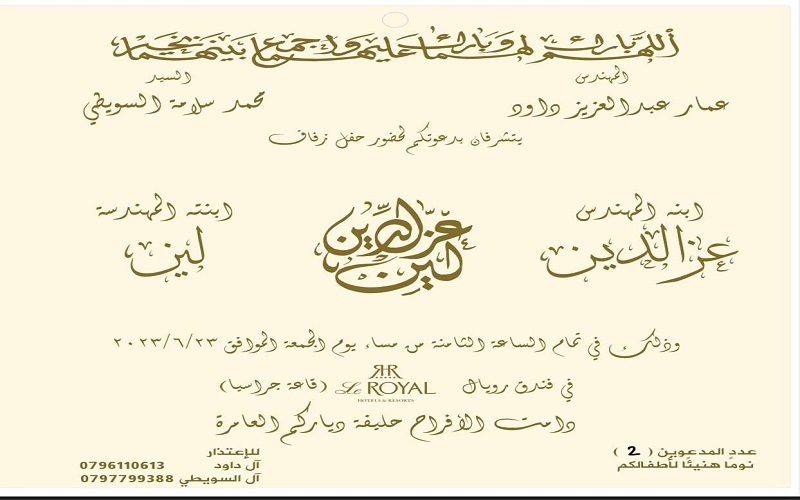 اللهم بارك لهما وبارك عليهما واجمع بينهما بخير
المهندس
عمار عبدالعزيز داود
السيد
محمد سلامة السويطي
يتشرفان بدعوتكم لحضور حفل زفاف
ابنه المهندس
عزالدين
عزّالدّين
لين
ابنته المهندسة
لين
وذلك في تمام الساعة الثامنة من مساء يوم الجمعة الموافق ٢٠٢٣/٦/٢٣
في فندق رويال Le ROYAL HOTELS & RESORTS (قاعة جراسيا)
دامت الأفراح حليفة دياركم العامرة
عدد المدعوين ( 2 )
نومًا هنيئًا لأطفالكم
للإعتذار
آل داود 0796110613
آل السويطي 0797799388